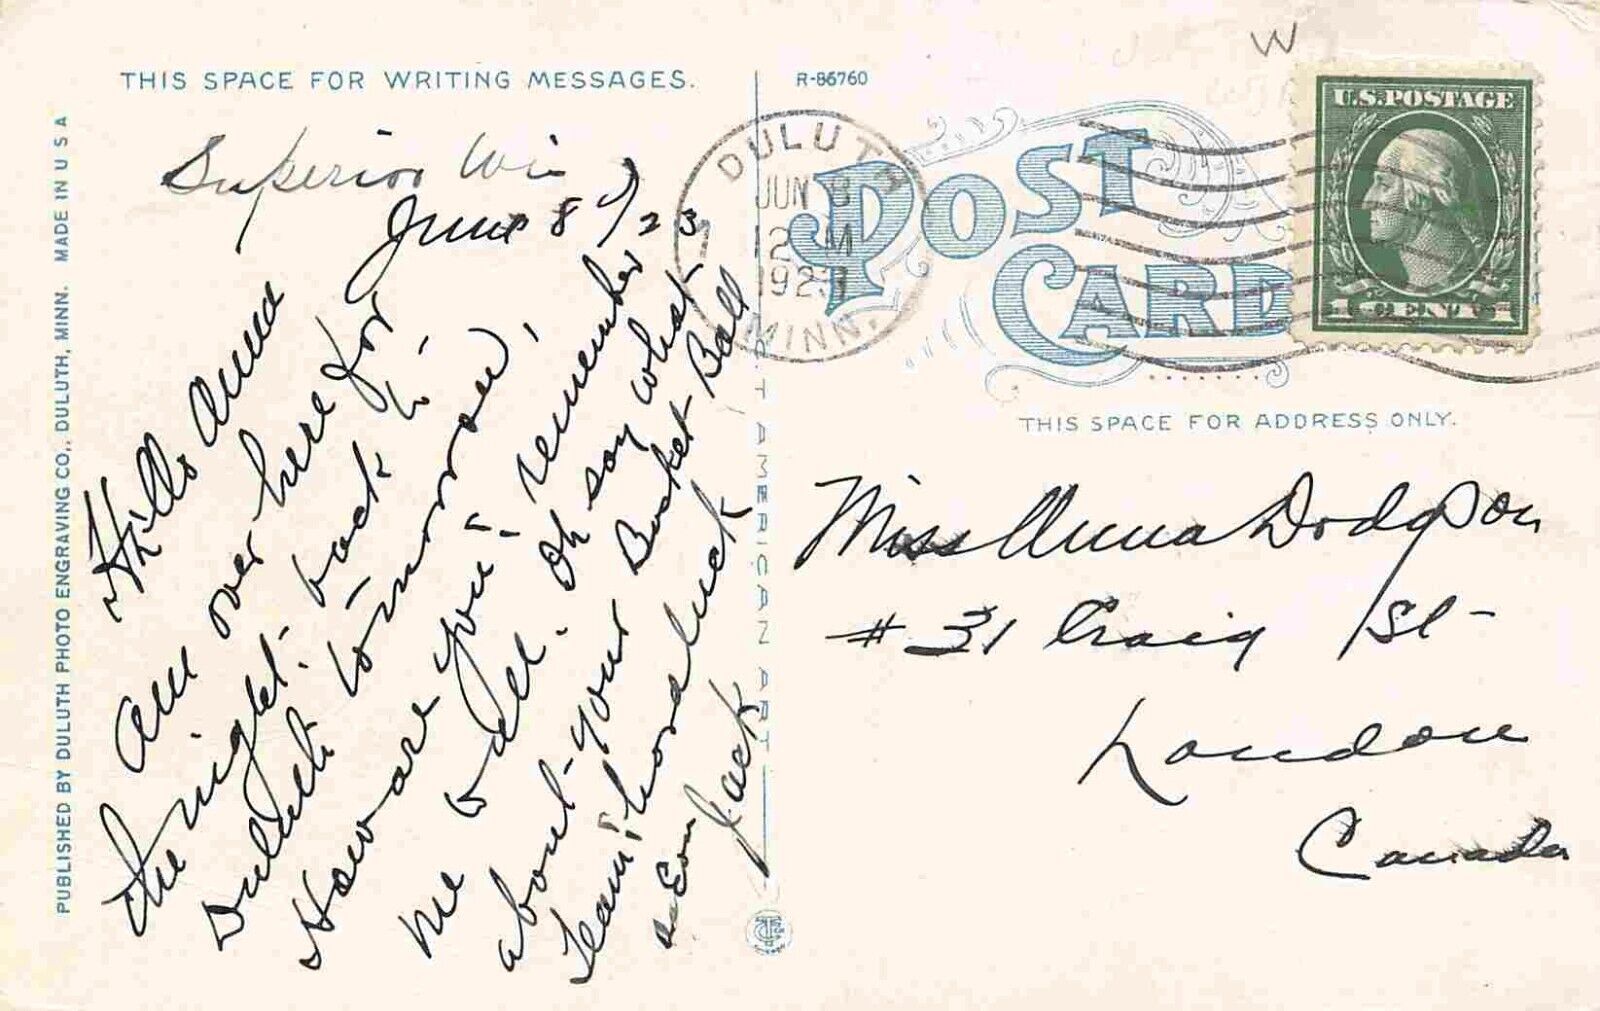 THIS SPACE FOR WRITING MESSAGES.
R-86760
W
Superior Wis
June 8th/23
Hello Anna
am over here for
the night. back to
Duluth tomorrow,
How are you? remember
me to all. Oh say what
about your Basket Ball
Team! hard luck
as Ever
Jack
PUBLISHED BY DULUTH PHOTO ENGRAVING CO., DULUTH, MINN. MADE IN U S A
C. T. AMERICAN ART
DULUTH
JUN 8
12 M
1923
MINN.
POST
CARD
U.S. POSTAGE
1 CENT 1
THIS SPACE FOR ADDRESS ONLY.
Miss Anna Dodgson
# 31 Craig St
London
Canada